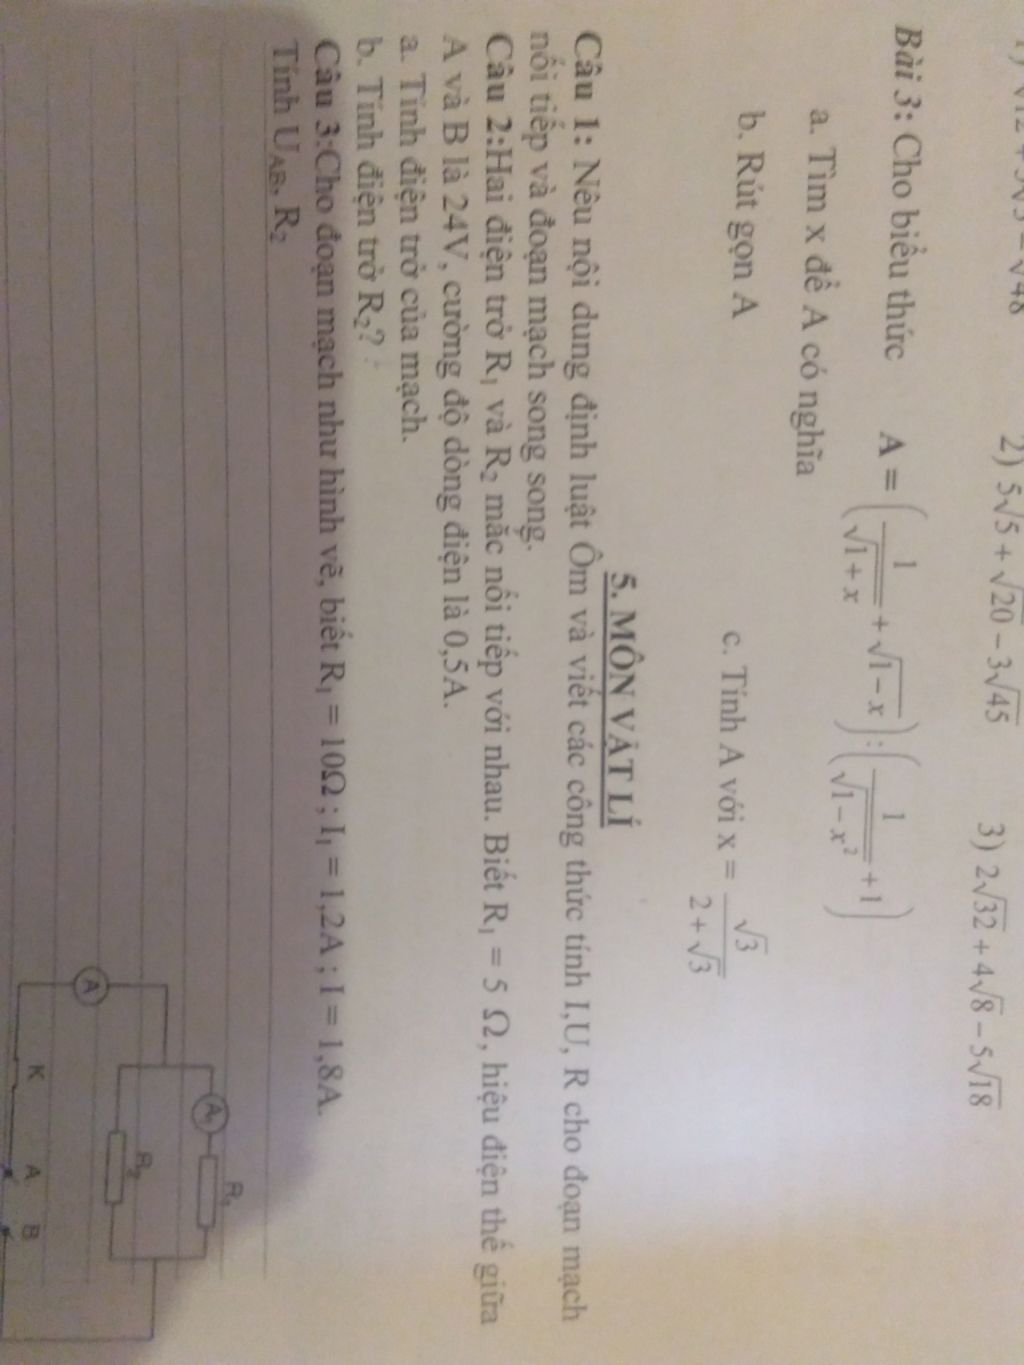 1) √12 + 5√3 − √48 2) 5√5 + √20 − 3√45 3) 2√32 + 4√8 − 5√18
Bài 3: Cho biểu thức A = (1/√1+x + √1−x) : (1/√1−x² + 1)
a. Tìm x để A có nghĩa
b. Rút gọn A c. Tính A với x = √3/2+√3
5. MÔN VẬT LÍ
Câu 1: Nêu nội dung định luật Ôm và viết các công thức tính I,U, R cho đoạn mạch
nối tiếp và đoạn mạch song song.
Câu 2:Hai điện trở R₁ và R₂ mắc nối tiếp với nhau. Biết R₁ = 5 Ω, hiệu điện thế giữa
A và B là 24V, cường độ dòng điện là 0,5A.
a. Tính điện trở của mạch.
b. Tính điện trở R₂?
Câu 3:Cho đoạn mạch như hình vẽ, biết R₁ = 10Ω ; I₁ = 1,2A ; I = 1,8A.
Tính U_AB, R₂
R₁
A₁
R₂
A
K A B